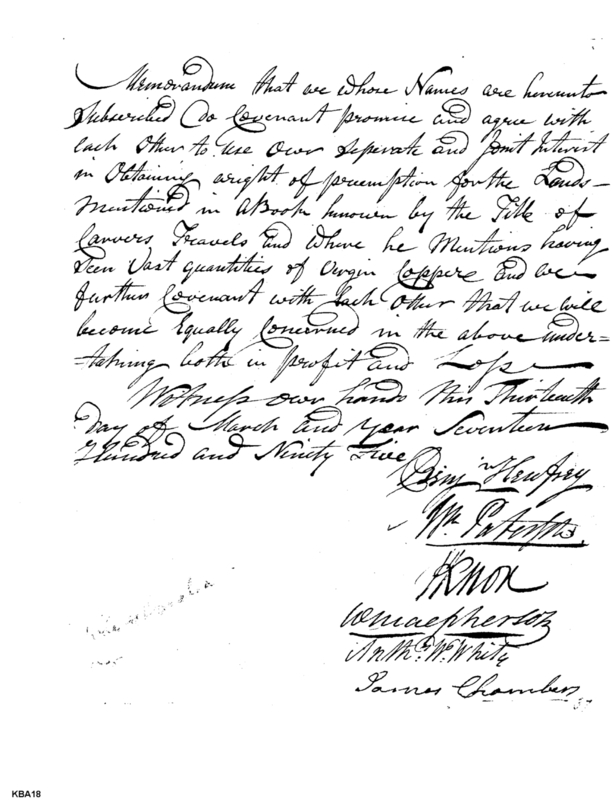 Memorandum that we whose Names are hereunto
Subscribed Do Covenant promise and agree with
Each Other to Use Our Seperate and Joint Interest
in Obtaining a right of preemption for the Lands
Mentioned in a Book known by the Title of
Carvers Travels and Where he Mentions having
Seen Vast quantities of Virgin Coppere and we
further Covenant with Each Other that we will
become Equally Concerned in the above under=
=taking both in profit and Loss
Witness our hands this Thirteenth
Day of March and Year Seventeen
Hundred and Ninety Five
Benjn Henfrey
Wm Paterson
HKnox
Wmacpherson
Anth. W. White
James Chambers
KBA18